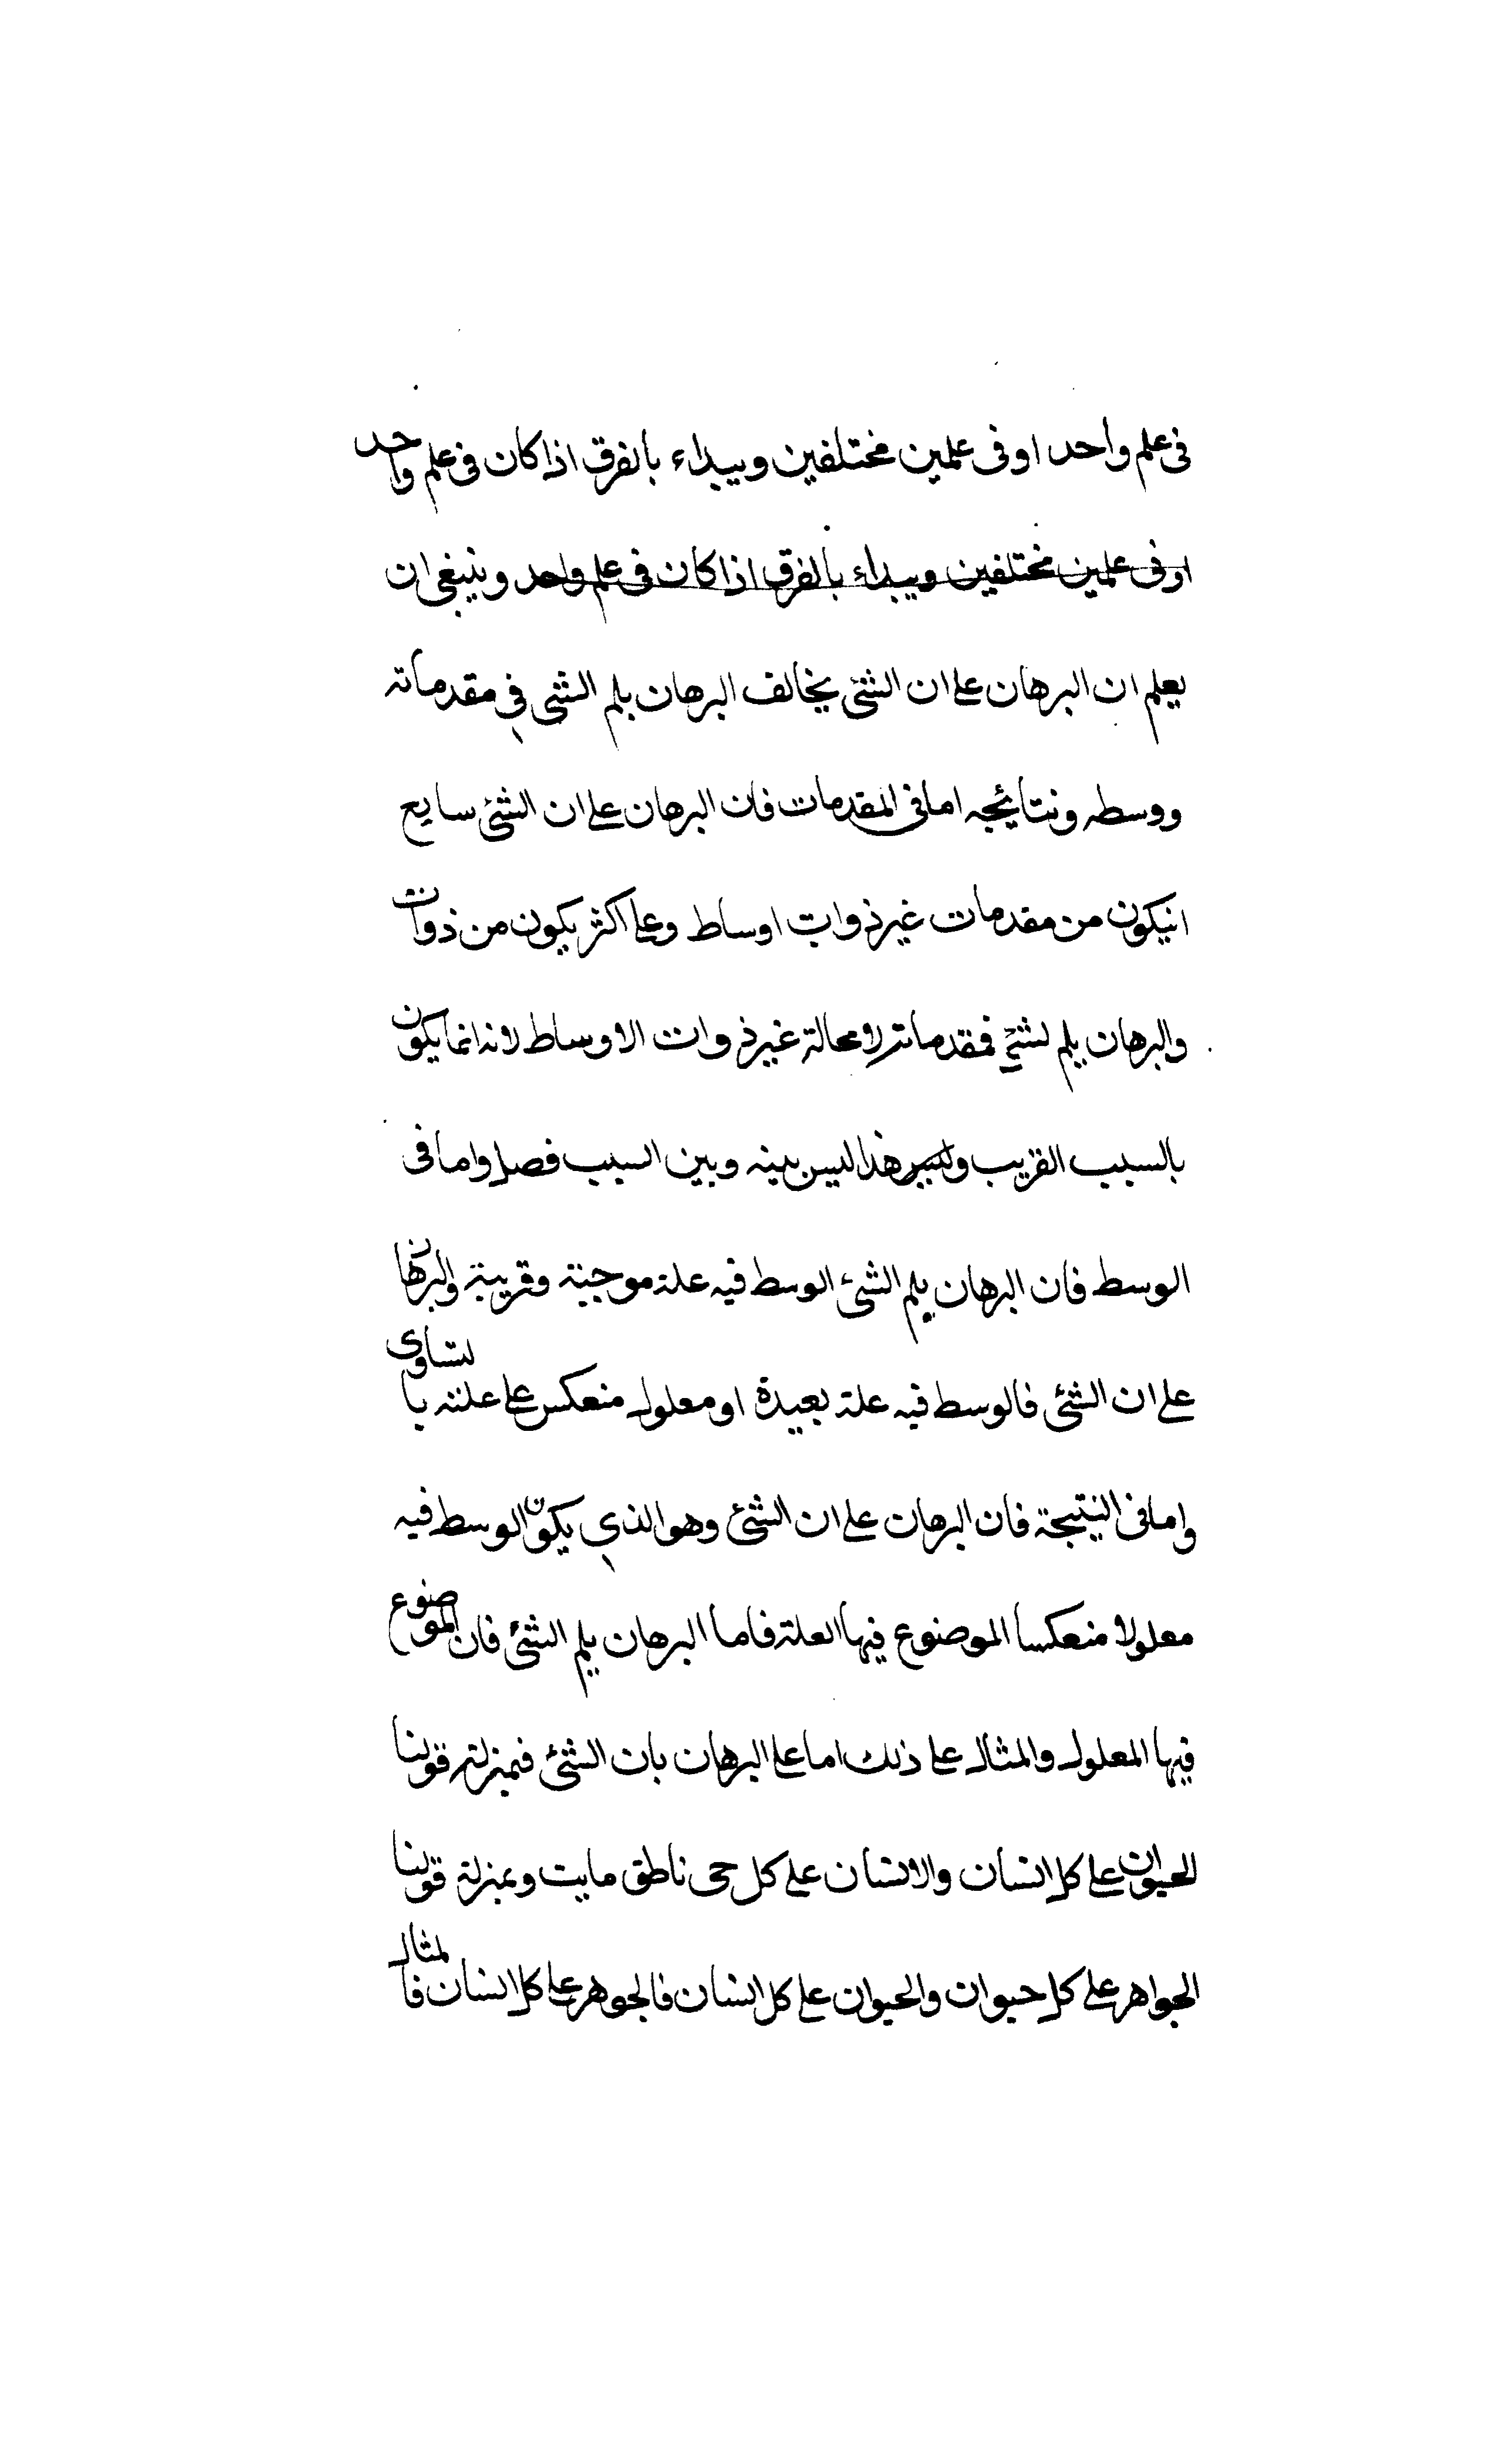 فى علم واحد او فى علمين مختلفين ويبداء بالفرق اذا كان فى علم واحد
او فى علمين مختلفين ويبداء بالفرق اذا كان فى علم واحد وينبغى ان
يعلم ان البرهان على ان الشئ يخالف البرهان بلم الشى فى مقدماته
ووسطه ونتايجه اما فى المقدمات فان البرهان على ان الشئ سايع
انيكون من مقدمات غير ذوات اوساط وعلى اكثر يكون من ذوات
والبرهان بلم لشئ فمقدماته لا محالة غير ذوات الاوساط لانه انما يكون
بالسبب القريب وليس هذا ليس بينه وبين السبب فصل واما فى
الوسط فان البرهان بلم الشئ الوسط فيه علة موجبة وقريبة والبرهان
على ان الشئ فالوسط فيه علة بعيدة او معلول منعكس على علته بالتساوى
واما فى النتيجة فان البرهان على ان الشئ وهو الذى يكون الوسط فيه
معلولا منعكسا الموضوع فيها العلة فاما البرهان بلم الشئ فان الموضوع
فيها المعلول والمثال على ذلك اما على البرهان بان الشئ فبمنزلة قولنا
الحيوان على كل انسان والانسان على كل حى ناطق مايت وبمنزلة قولنا
الجواهر على كل حيوان والحيوان على كل انسان فالجوهر على كل انسان فالمثال